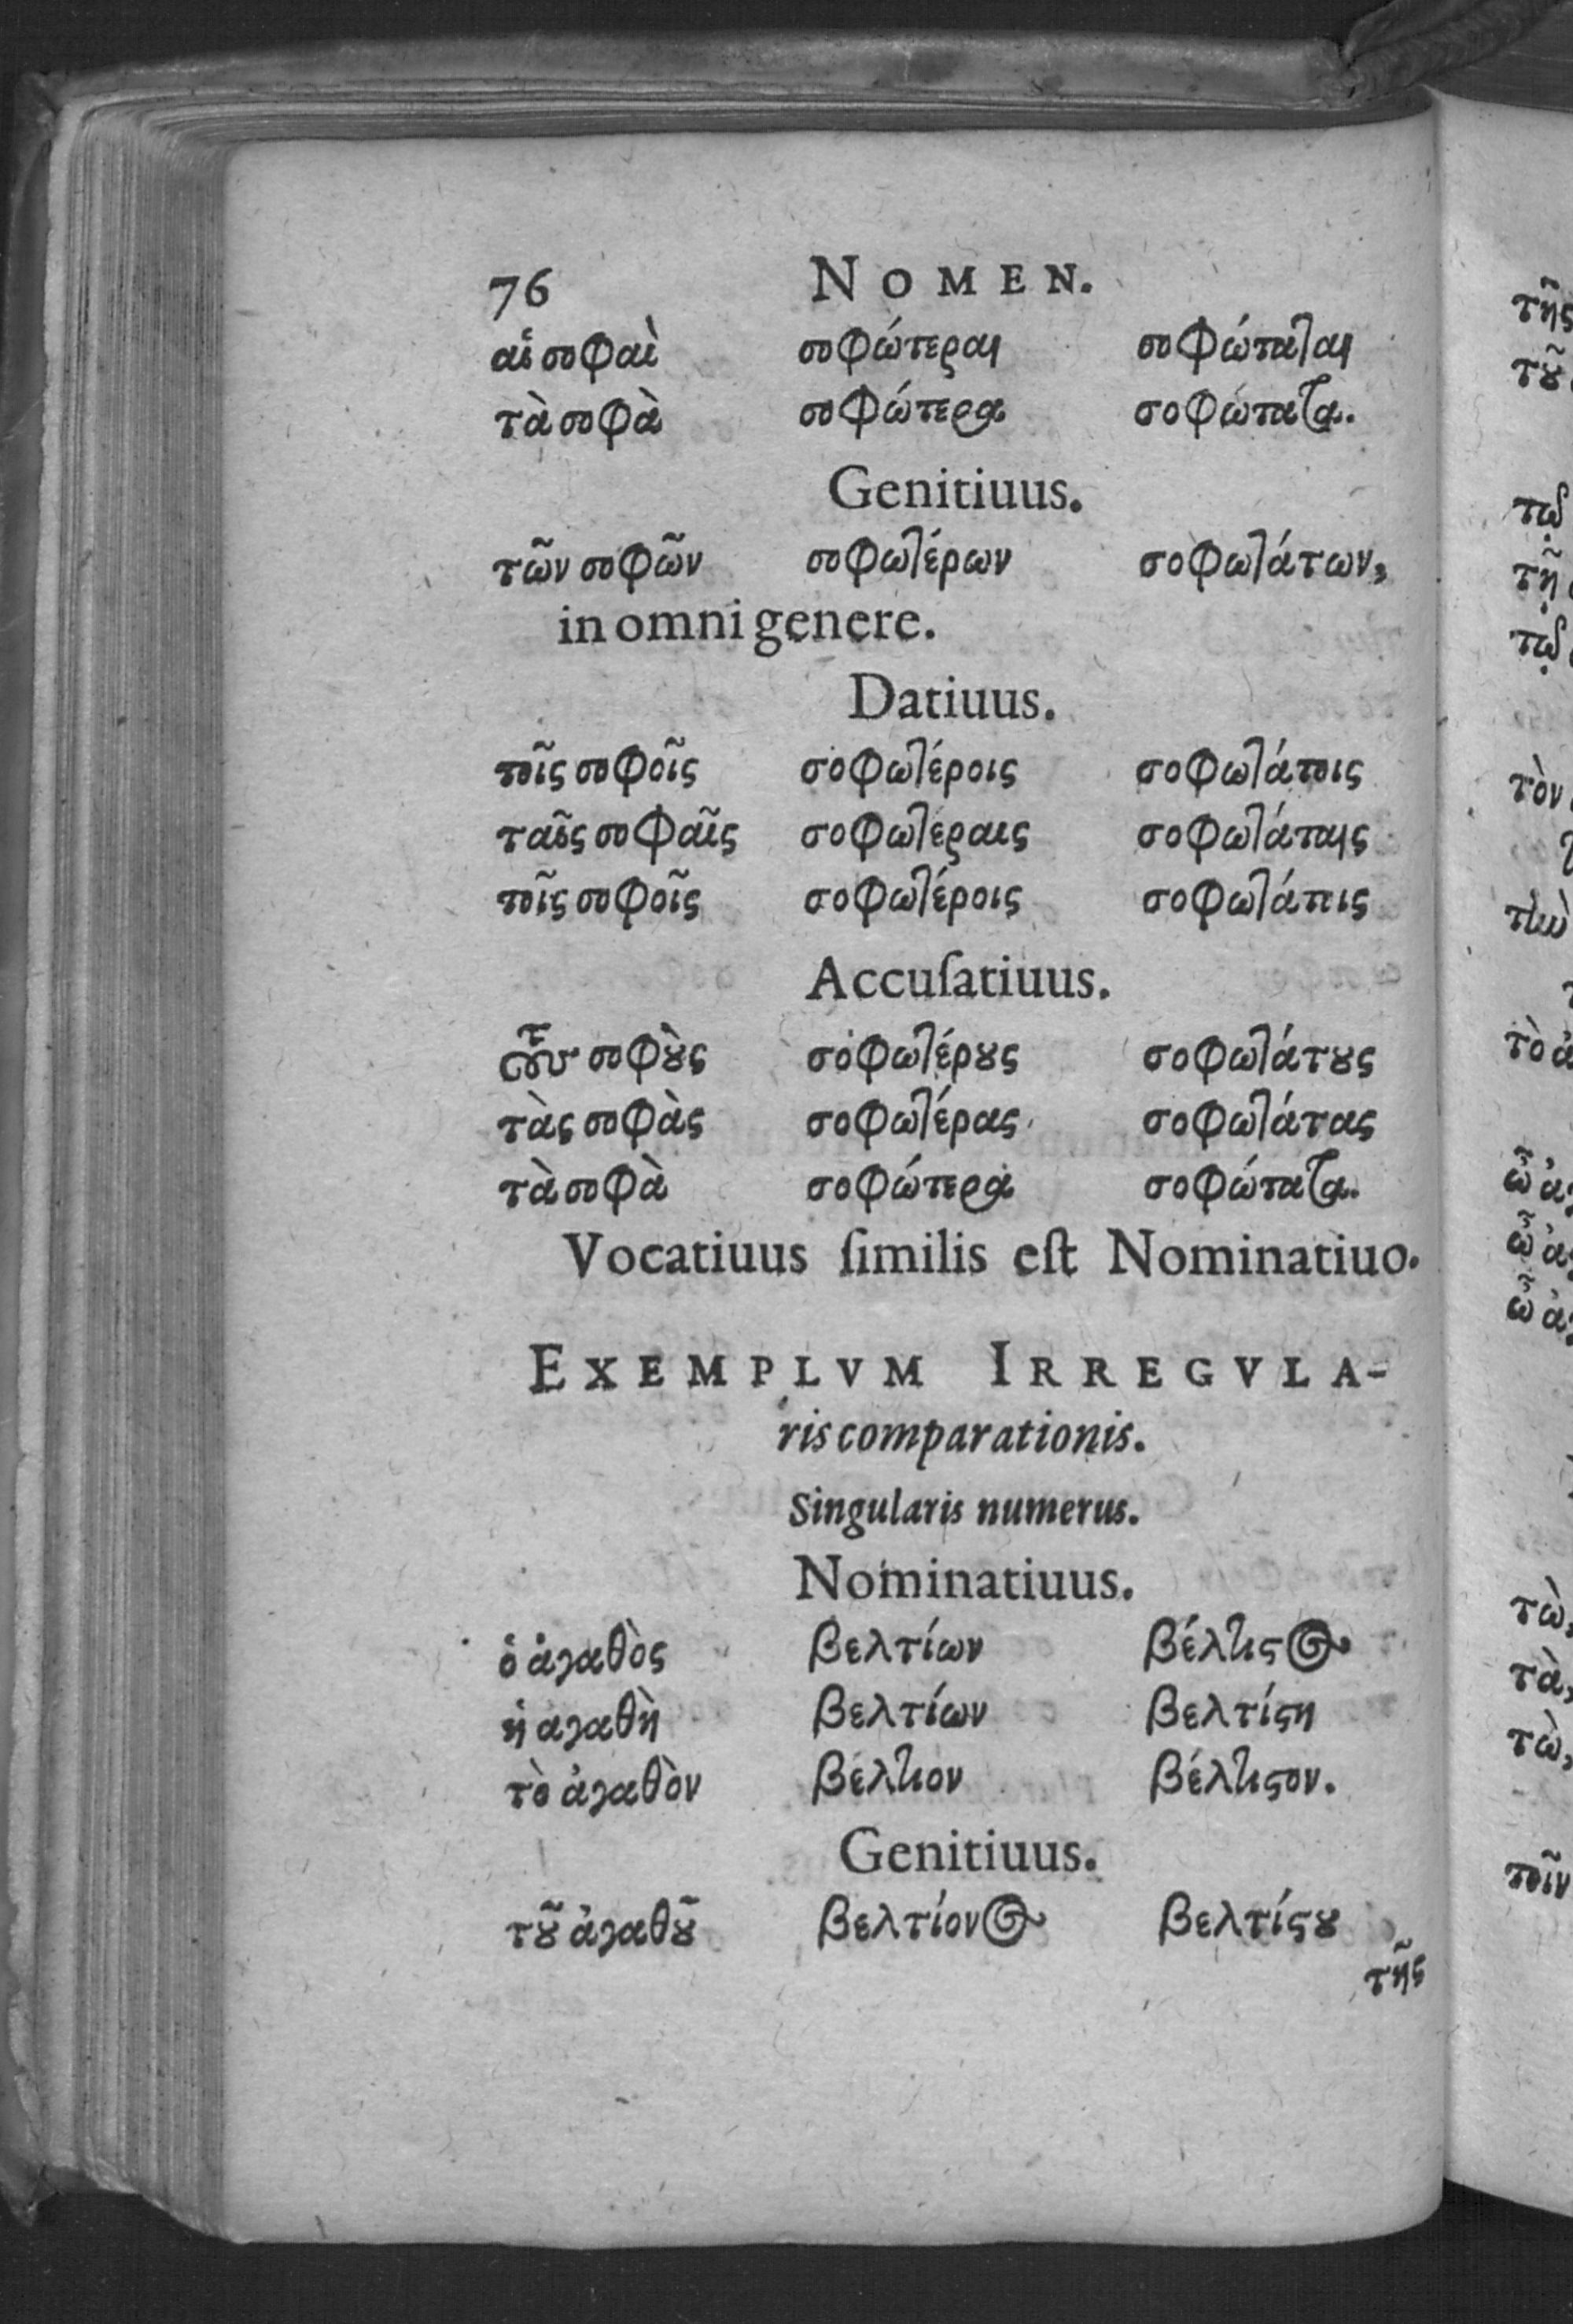 76 NOMEN.
αἱ σοφαὶ σοφώτεραι σοφώταται
τὰ σοφὰ σοφώτερα σοφώτατα.
Genitiuus.
τῶν σοφῶν σοφωτέρων σοφωτάτων,
in omni genere.
Datiuus.
τοῖς σοφοῖς σοφωτέροις σοφωτάτοις
ταῖς σοφαῖς σοφωτέραις σοφωτάταις
τοῖς σοφοῖς σοφωτέροις σοφωτάτοις
Accuſatiuus.
τοὺς σοφȣ̀ς σοφωτέρȣς σοφωτάτȣς
τὰς σοφὰς σοφωτέρας σοφωτάτας
τὰ σοφὰ σοφώτερα σοφώτατα.
Vocatiuus ſimilis eſt Nominatiuo.
EXEMPLVM IRREGVLA-
ris comparationis.
Singularis numerus.
Nominatiuus.
ὁ ἀγαθὸς βελτίων βέλτιϛος
ἡ αγαθὴ βελτίων βελτίϛη
τὸ ἀγαθὸν βέλτιον βέλτιϛον.
Genitiuus.
τȣ͂ ἀγαθȣ͂ βελτίονος βελτίϛȣ
τῆς
τῆς
τȣ͂
τῷ
τῇ
τῷ
τὸν
τὴν
τὸ ἀ
ὦ ἀγ
ὦ ἀγ
ὦ ἀγ
τὼ,
τὰ,
τὼ,
τοῖν